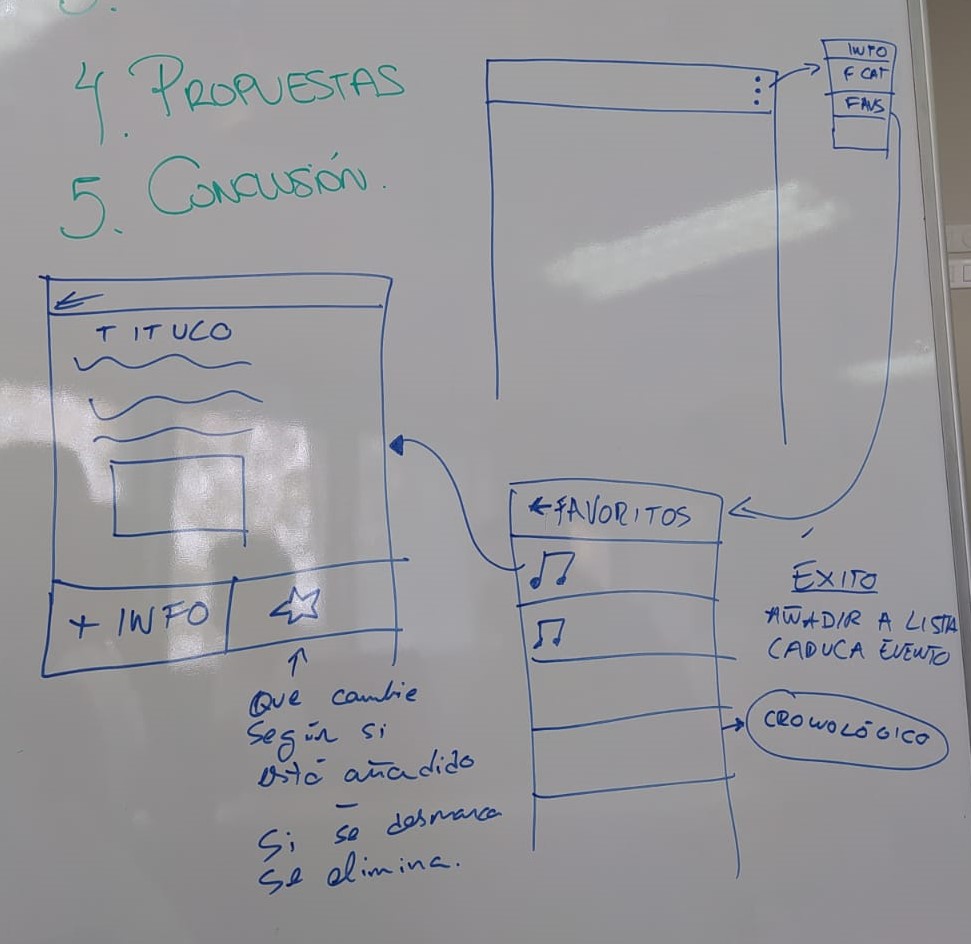 4. PROPUESTAS
5. CONCLUSIÓN.
INFO
F CAT
FAVS
TITULO
+ INFO
Que cambie
según si
está añadido
Si se desmarca
se elimina.
FAVORITOS
ÉXITO
AÑADIR A LISTA
CADUCA EVENTO
CRONOLÓGICO